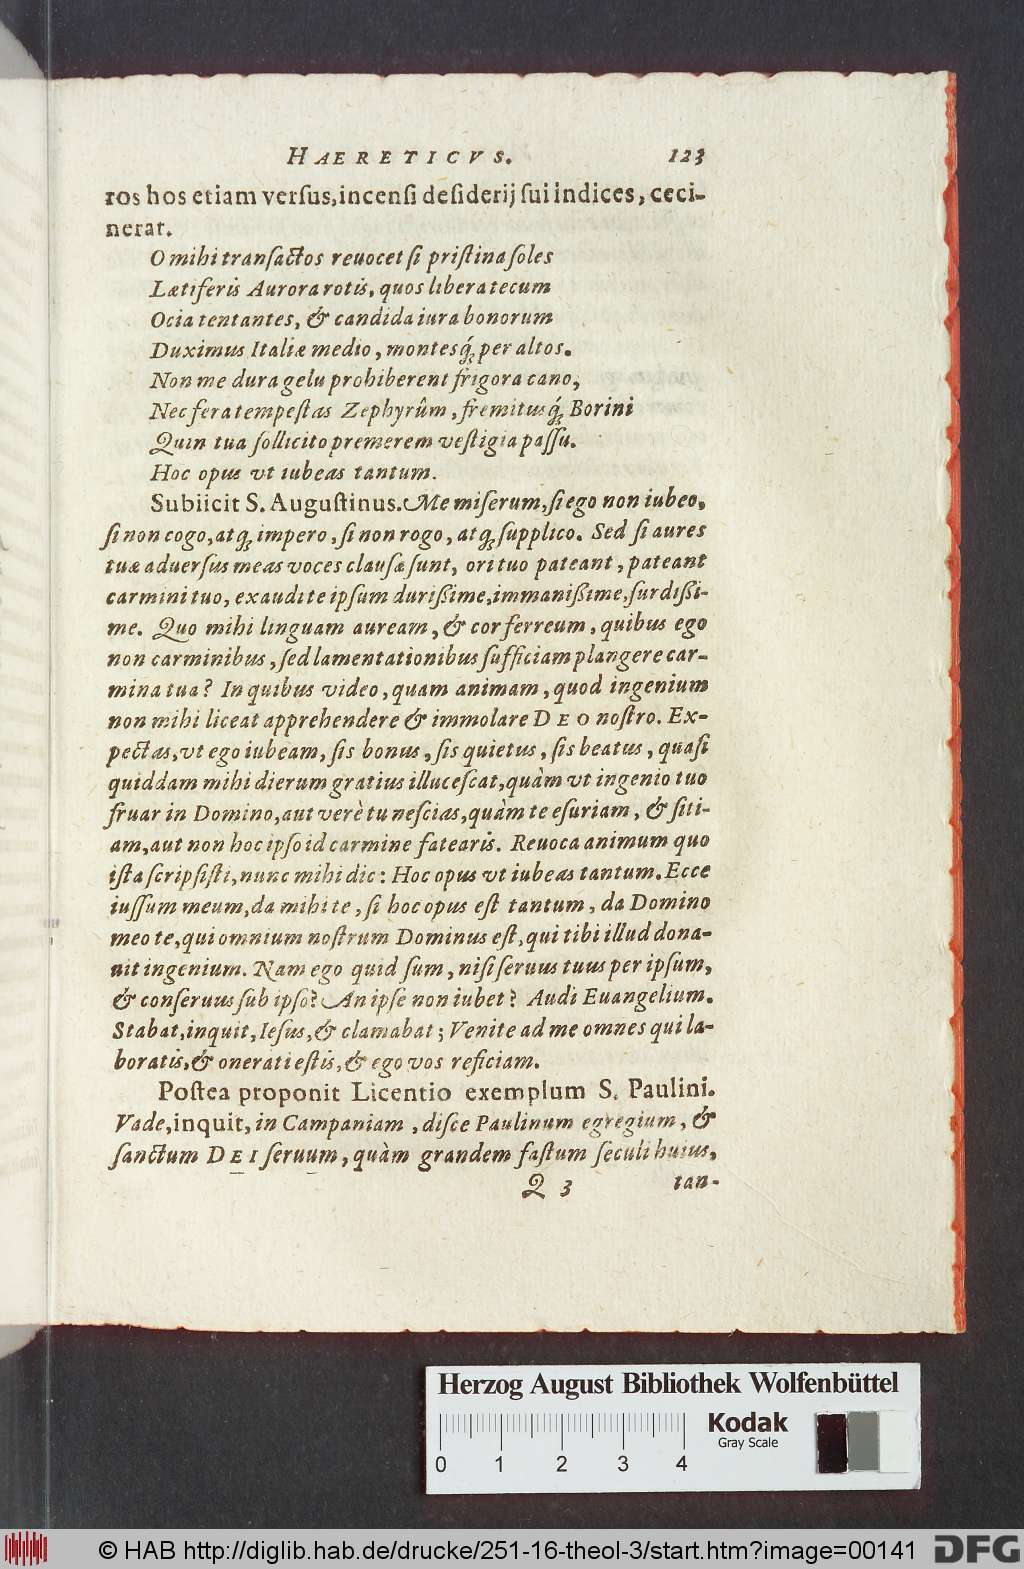 HAERETICVS. 123
ros hos etiam verſus, incenſi deſiderij ſui indices, ceci-
nerat.
O mihi tranſactos reuocet ſi priſtina ſoles
Lætiferis Aurora rotis, quos libera tecum
Ocia tentantes, & candida iura bonorum
Duximus Italiæ medio, montesq́; per altos.
Non me dura gelu prohiberent frigora cano,
Nec fera tempeſtas Zephyrûm, fremitusq́; Borini
Quin tua ſollicito premerem veſtigia paſſu.
Hoc opus vt iubeas tantum.
Subiicit S. Auguſtinus. Me miſerum, ſi ego non iubeo,
ſi non cogo, atq; impero, ſi non rogo, atq; ſupplico. Sed ſi aures
tuæ aduerſus meas voces clauſæ ſunt, ori tuo pateant, pateant
carmini tuo, exaudi te ipſum durißime, immanißime, ſurdißi-
me. Quo mihi linguam auream, & cor ferreum, quibus ego
non carminibus, ſed lamentationibus ſufficiam plangere car-
mina tua? In quibus video, quam animam, quod ingenium
non mihi liceat apprehendere & immolare DEO noſtro. Ex-
pectas, vt ego iubeam, ſis bonus, ſis quietus, ſis beatus, quaſi
quiddam mihi dierum gratius illuceſcat, quàm vt ingenio tuo
fruar in Domino, aut verè tu neſcias, quàm te eſuriam, & ſiti-
am, aut non hoc ipſo id carmine fatearis. Reuoca animum quo
iſta ſcripſiſti, nunc mihi dic: Hoc opus vt iubeas tantum. Ecce
iuſſum meum, da mihi te, ſi hoc opus eſt tantum, da Domino
meo te, qui omnium noſtrum Dominus eſt, qui tibi illud dona-
uit ingenium. Nam ego quid ſum, niſi ſeruus tuus per ipſum,
& conſeruus ſub ipſo? An ipſe non iubet? Audi Euangelium.
Stabat, inquit, Ieſus, & clamabat; Venite ad me omnes qui la-
boratis, & onerati eſtis, & ego vos reficiam.
Poſtea proponit Licentio exemplum S. Paulini.
Vade, inquit, in Campaniam, diſce Paulinum egregium, &
ſanctum DEI ſeruum, quàm grandem faſtum ſeculi huius,
Q 3 tan-
Herzog August Bibliothek Wolfenbüttel
Kodak
Gray Scale
0 1 2 3 4
© HAB http://diglib.hab.de/drucke/251-16-theol-3/start.htm?image=00141 DFG